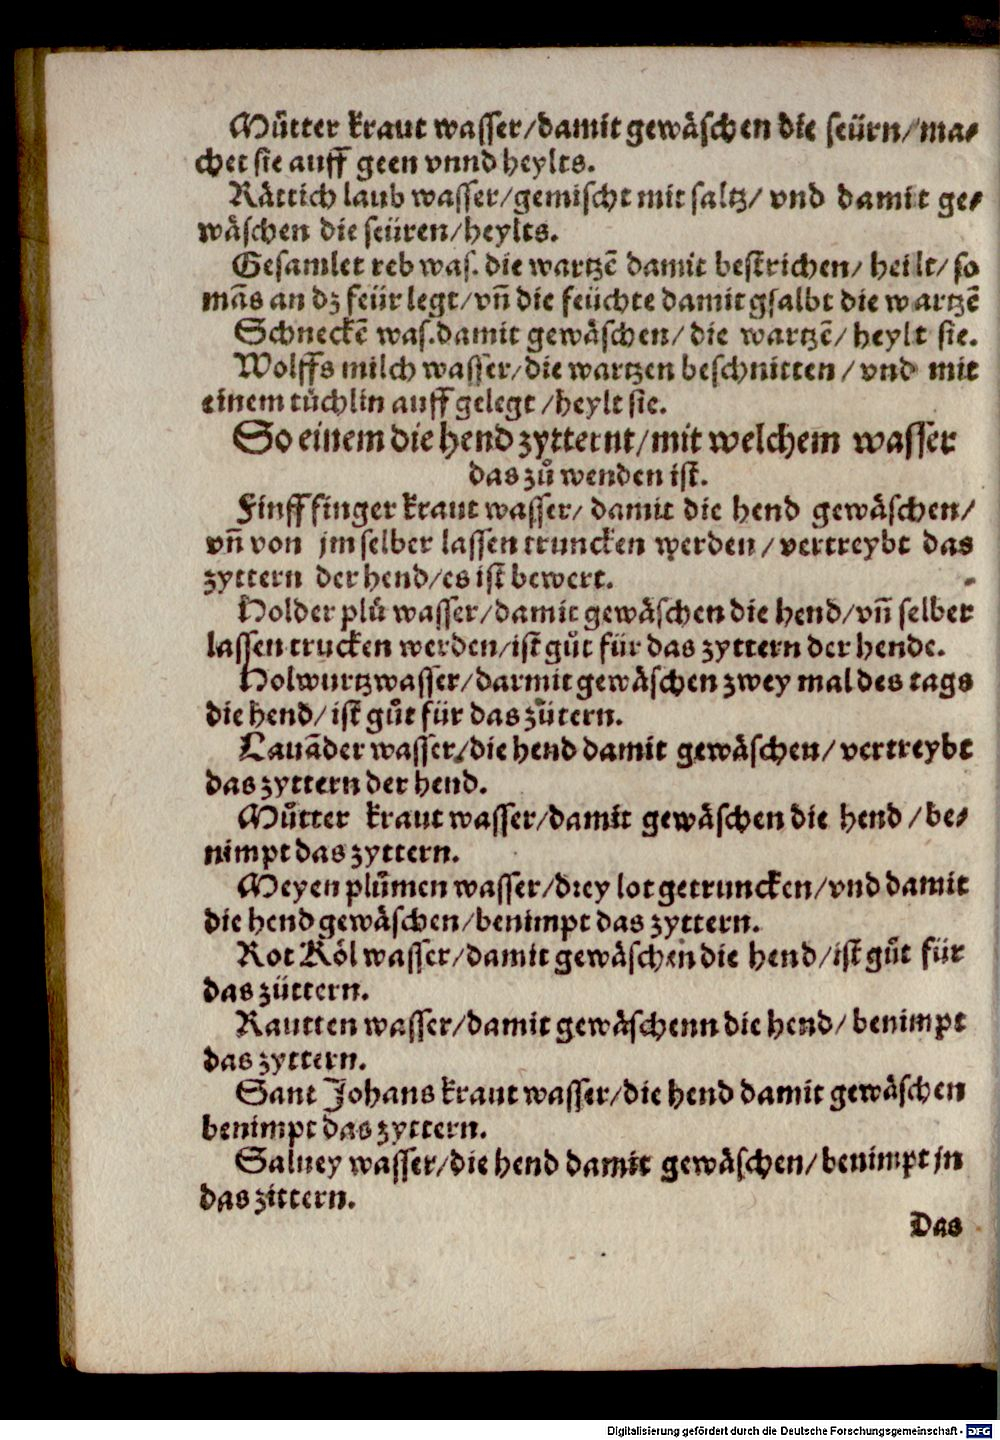 Můtter kraut wasser/damit gewäschen die seürn/ma-
chet sie auff geen vnnd heylts.
Rättich laub wasser/gemischt mit saltz/ vnd damit ge-
wäschen die seüren/heylts.
Gesamlet reb was. die wartzē damit bestrichen/ heilt/ so
mās an dz feür legt/vñ die feüchte damit gsalbt die wartzē
Schneckē was.damit gewäschen/die wartzē/heylt sie.
Wolffs milch wasser/die wartzen beschnitten/vnd mit
einem tüchlin auff gelegt/heylt sie.
So einem die hend zytternt/mit welchem wasser
das zů wenden ist.
Finff finger kraut wasser/ damit die hend gewäschen/
vñ von jm selber lassen truncken werden/vertreybt das
zyttern der hend/es ist bewert.
Holder plů wasser/damit gewäschen die hend/vñ selber
lassen trucken werden/ist gůt für das zyttern der hende.
Holwurtzwasser/darmit gewäschen zwey mal des tags
die hend/ist gůt für das zütern.
Lauāder wasser/die hend damit gewäschen/vertreybt
das zyttern der hend.
Můtter kraut wasser/damit gewäschen die hend/be-
nimpt das zyttern.
Meyen plůmen wasser/drey lot getruncken/vnd damit
die hend gewäschen/benimpt das zyttern.
Rot Köl wasser/damit gewäschen die hend/ist gůt für
das züttern.
Rautten wasser/damit gewäschenn die hend/ benimpt
das zyttern.
Sant Johans kraut wasser/die hend damit gewäschen
benimpt das zyttern.
Saluey wasser/die hend damit gewäschen/benimpt jn
das zittern.
Das
Digitalisierung gefördert durch die Deutsche Forschungsgemeinschaft - DFG